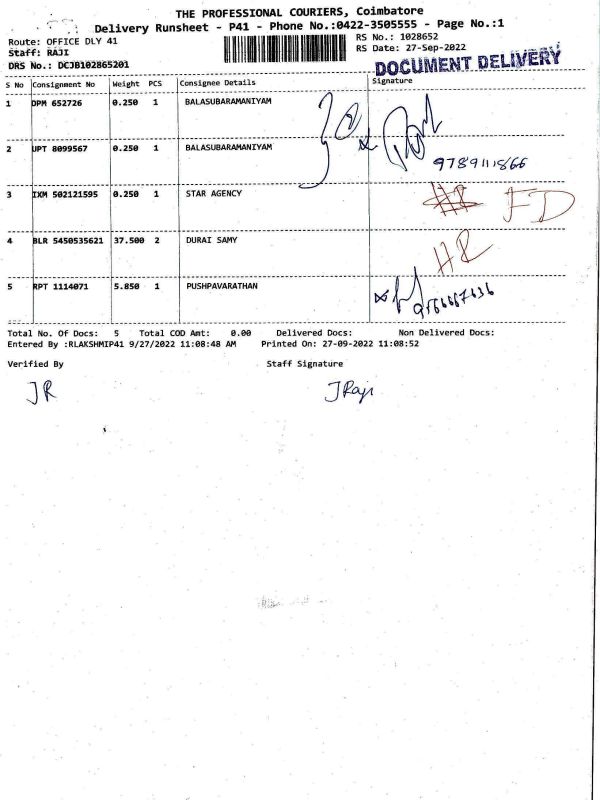 THE PROFESSIONAL COURIERS, Coimbatore
Delivery Runsheet - P41 - Phone No.:0422-3505555 - Page No.:1
Route: OFFICE DLY 41
Staff: RAJI
DRS No.: DCJB102865201
RS No.: 1028652
RS Date: 27-Sep-2022
DOCUMENT DELIVERY
S No Consignment No Weight PCS Consignee Details Signature
1 DPM 652726 0.250 1 BALASUBARAMANIYAM
2 UPT 8099567 0.250 1 BALASUBARAMANIYAM
9789111866
3 IXM 502121595 0.250 1 STAR AGENCY
FD
4 BLR 5450535621 37.500 2 DURAI SAMY
HR
5 RPT 1114071 5.850 1 PUSHPAVARATHAN
Total No. Of Docs: 5 Total COD Amt: 0.00 Delivered Docs: Non Delivered Docs:
Entered By :RLAKSHMIP41 9/27/2022 11:08:48 AM Printed On: 27-09-2022 11:08:52
Verified By Staff Signature
JR JRaji